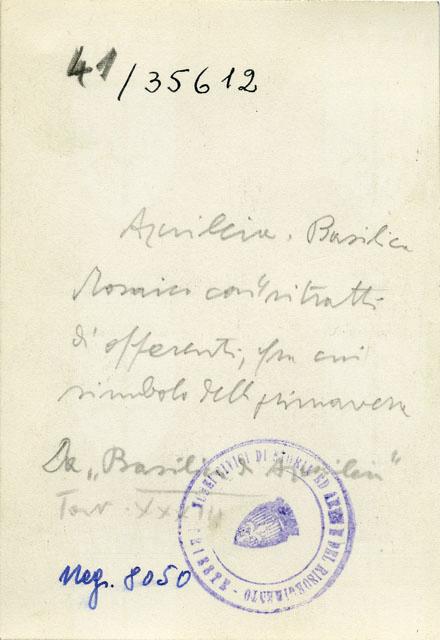 41/35612
Aquileia. Basilica
Mosaico con ritratti
di offerenti, fra cui
simbolo della primavera
Da "Basilica di Aquileia"
Tav. XXX
Neg. 8050
CIVICI MUSEI DI STORIA ED ARTE E DEL RISORGIMENTO - TRIESTE -